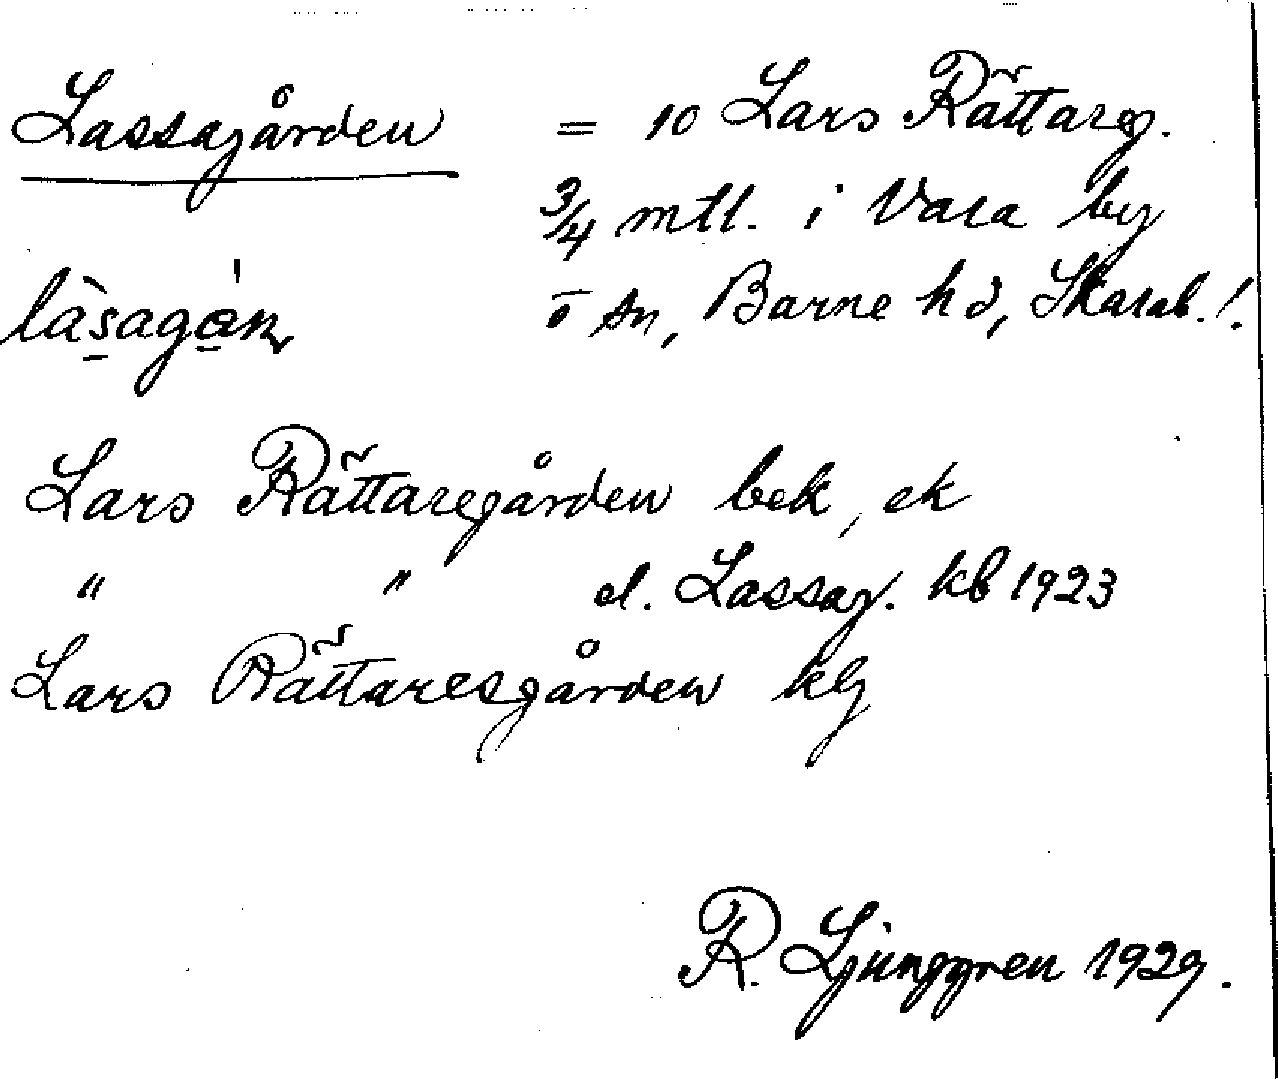 Lassagården = 10 Lars Rättareg.
3/4 mtl. i Vara by
o sn, Barne hd, Skarab. l.
làsagá̱n
Lars Rättaregården bek, ek
" " el. Lassag. kb 1923
Lars Rättaresgården kg
R. Ljunggren 1929.